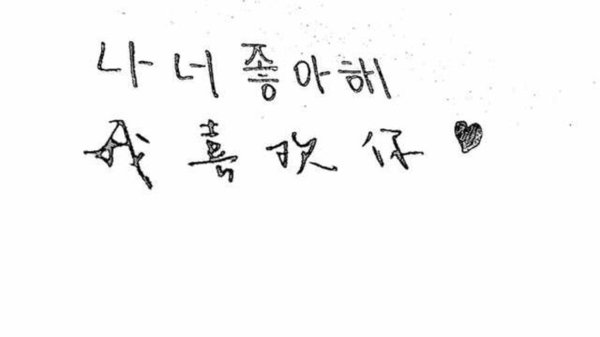 나 너 좋아해
我 喜 欢 你 ♥